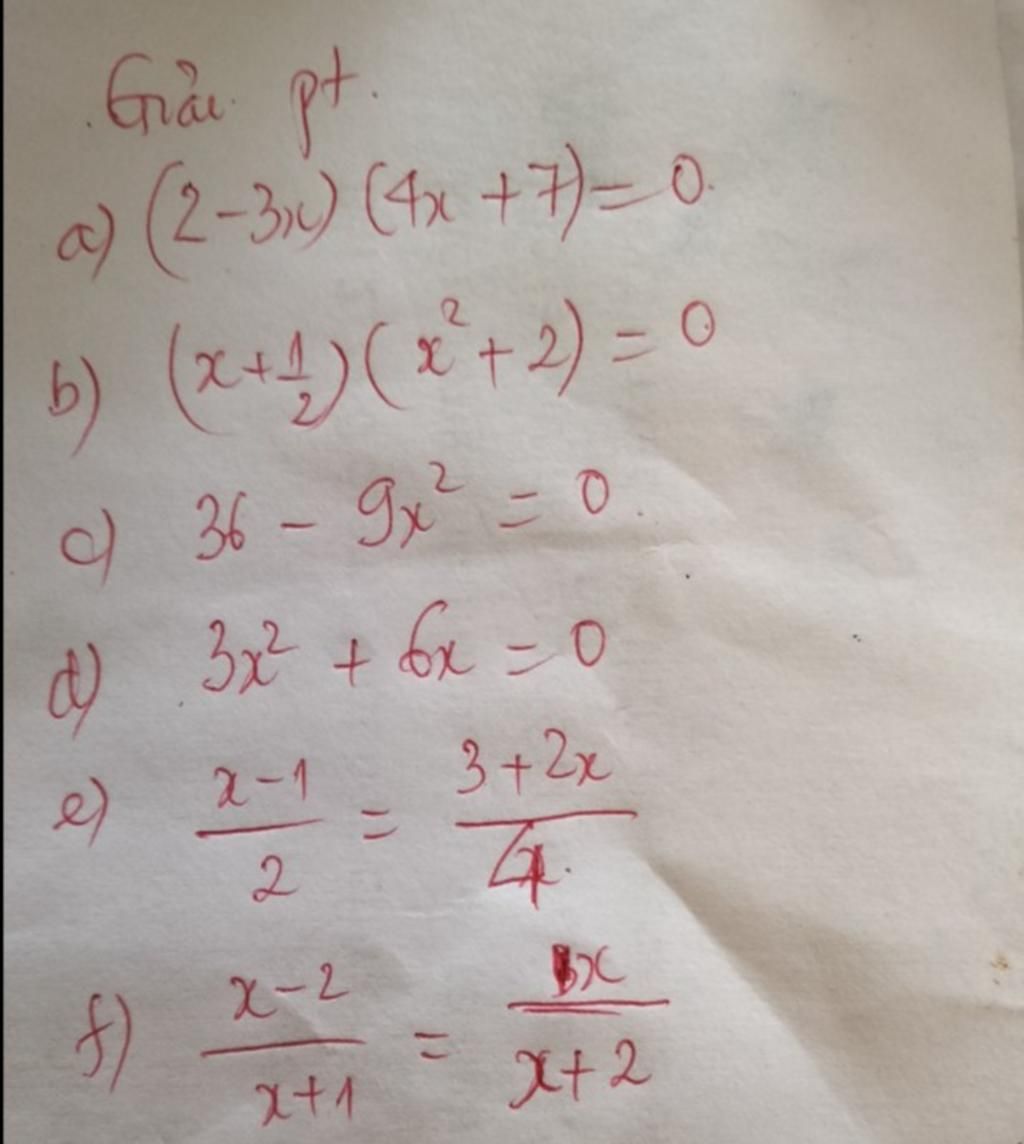 Giải pt.
a) (2-3x) (4x + 7) = 0.
b) (x + 1/2) ( x² + 2) = 0
c) 36 - 9x² = 0.
d) 3x² + 6x = 0
e) x-1/2 = 3+2x/4.
f) x-2/x+1 = x/x+2